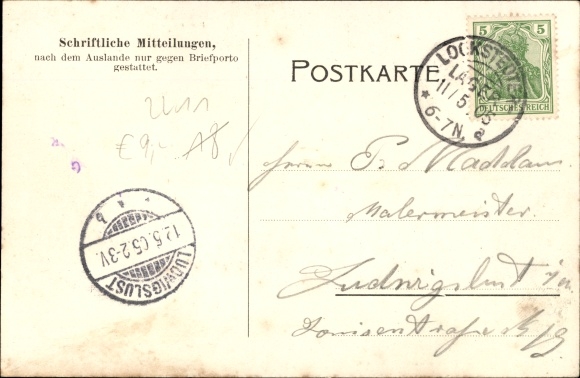 Schriftliche Mitteilungen,
nach dem Auslande nur gegen Briefporto
gestattet.
POSTKARTE
5 5
DEUTSCHES REICH
LOCKSTEDTER
LAGER
11/5.05
* 6-7N. a
2211
€9,- A8,
LUDWIGSLUST
12.5.05.2-3V.
Herrn P. Maddaus
Malermeister
Ludwigslust i/m
Louisenstraße